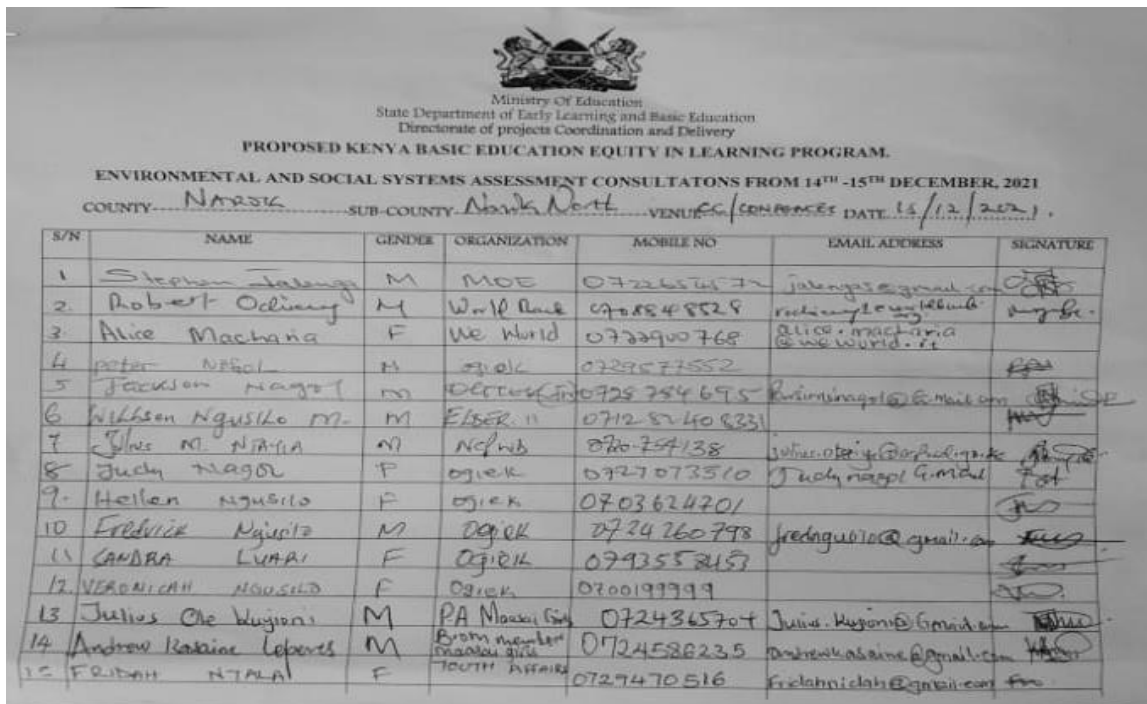 Ministry Of Education
State Department of Early Learning and Basic Education
Directorate of projects Coordination and Delivery
PROPOSED KENYA BASIC EDUCATION EQUITY IN LEARNING PROGRAM.
ENVIRONMENTAL AND SOCIAL SYSTEMS ASSESSMENT CONSULTATONS FROM 14TH -15TH DECEMBER, 2021
COUNTY NAROK SUB-COUNTY Narok North VENUE DATE 15/12/2021.
S/N NAME GENDER ORGANIZATION MOBILE NO EMAIL ADDRESS SIGNATURE
1 Stephen Jalenga M MOE
2. Robert Ochieng M World Bank
3. Alice Macharia F We World 0722900768 alice.macharia
@weworld.it
4 peter M ogiek 0729577552
5 Jackson Nagol M 0728784695
6 Willson Ngusilo M. M 071282408331
7 Julius M. M 0720-754138
8 Judy Nagol F ogiek 0727073510 Judynagol G.mail
9. Hellen Ngusilo F ogiek 0703624201
10 Fredrick Ngusilo M Ogiek 0724260798
11 SANDRA LUARI F Ogiek 0793558453
12. VERONICAH NGUSILO F Ogiek 0700199999
13 Julius Ole Kuyioni M P.A Maasai Girls 0724365704 Julius.Kuyioni@Gmail.com
14 Andrew Kasaine M Bom member
maasai girls 0724586235 andrewkasaine@gmail.com
15 FRIDAH NTALA F YOUTH AFFAIRS 0729470516 fridahnidah@gmail.com